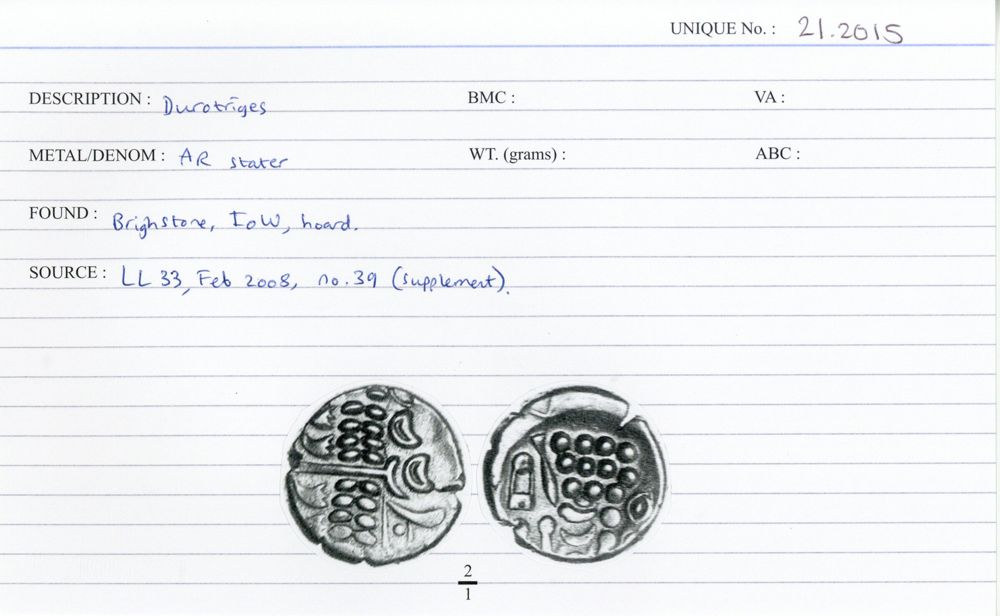 UNIQUE No. : 21.2015
DESCRIPTION : Durotriges BMC : VA :
METAL/DENOM : AR stater WT. (grams) : ABC :
FOUND : Brighstone, IoW, hoard.
SOURCE : LL 33, Feb 2008, no. 39 (supplement).
2
1